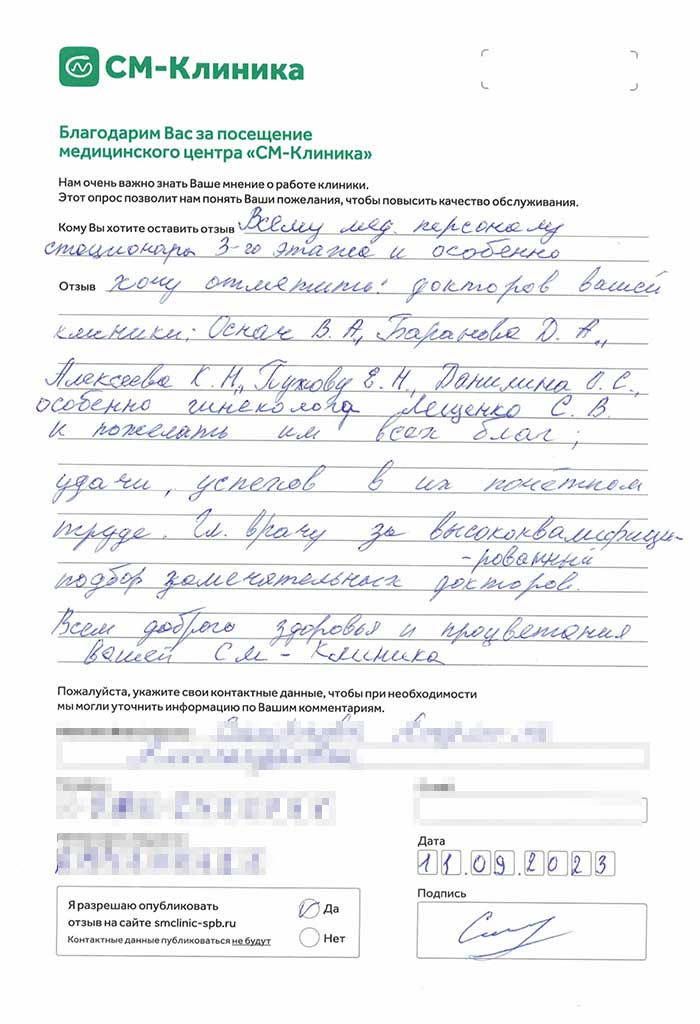 СМ-Клиника
Благодарим Вас за посещение
медицинского центра «СМ-Клиника»
Нам очень важно знать Ваше мнение о работе клиники.
Этот опрос позволит нам понять Ваши пожелания, чтобы повысить качество обслуживания.
Кому Вы хотите оставить отзыв Всему мед. персоналу
стационара 3-го этажа и особенно
Отзыв хочу отметить: докторов вашей
клиники: Оснач В. А., Баранова Д. А.,
Алексеева К. Н., Пухову Е. Н., Данилина О. С.,
особенно гинеколога Лещенко С. В.
и пожелать им всех благ;
удачи, успехов в их почётном
труде. Гл. врачу за высококвалифици-
-рованный
подбор замечательных докторов.
Всем доброго здоровья и процветания
вашей См - Клиника
Пожалуйста, укажите свои контактные данные, чтобы при необходимости
мы могли уточнить информацию по Вашим комментариям.
Дата
11.09.2023
Подпись
Я разрешаю опубликовать
отзыв на сайте smclinic-spb.ru
Контактные данные публиковаться не будут
Да
Нет